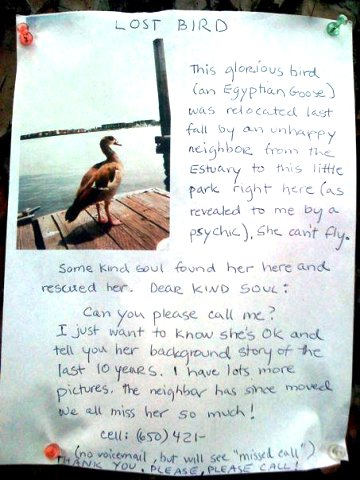 LOST BIRD
This glorious bird
(an Egyptian Goose)
was relocated last
fall by an unhappy
neighbor from the
Estuary to this little
park right here (as
revealed to me by a
psychic). She can't fly.
Some kind soul found her here and
rescued her. DEAR KIND SOUL:
Can you please call me?
I just want to know she's OK and
tell you her background story of the
last 10 years. I have lots more
pictures. The neighbor has since moved
We all miss her so much!
cell: (650) 421-
(no voicemail, but will see "missed call")
THANK YOU, PLEASE, PLEASE CALL!